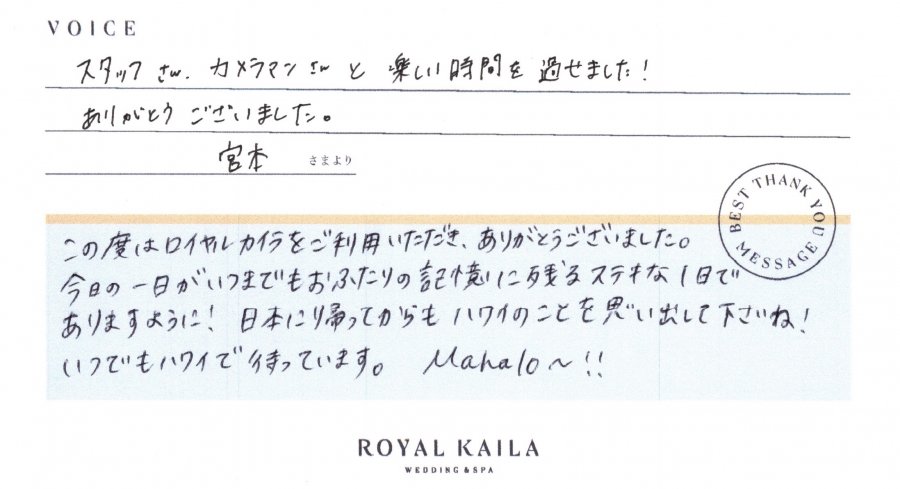 VOICE
スタッフさん、カメラマンさんと楽しい時間を過せました!
ありがとうございました。
宮本 さまより
BEST THANK YOU MESSAGE
この度はロイヤルカイラをご利用いただき、ありがとうございました。
今日の一日がいつまでもおふたりの記憶に残るステキな1日で
ありますように! 日本に帰ってからもハワイのことを思い出して下さいね!
いつでもハワイで待っています。 Mahalo~!!
ROYAL KAILA
WEDDING & SPA